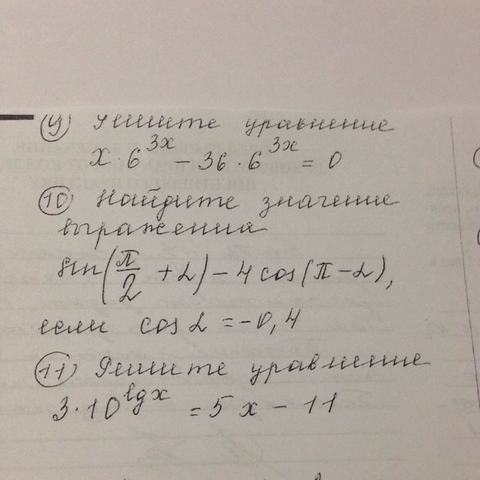 9) Решите уравнение
x·6^3x − 36·6^3x = 0
10) Найдите значение
выражения
sin(π/2 + α) − 4 cos(π − α),
если cos α = −0,4
11) Решите уравнение
3·10^lg x = 5x − 11